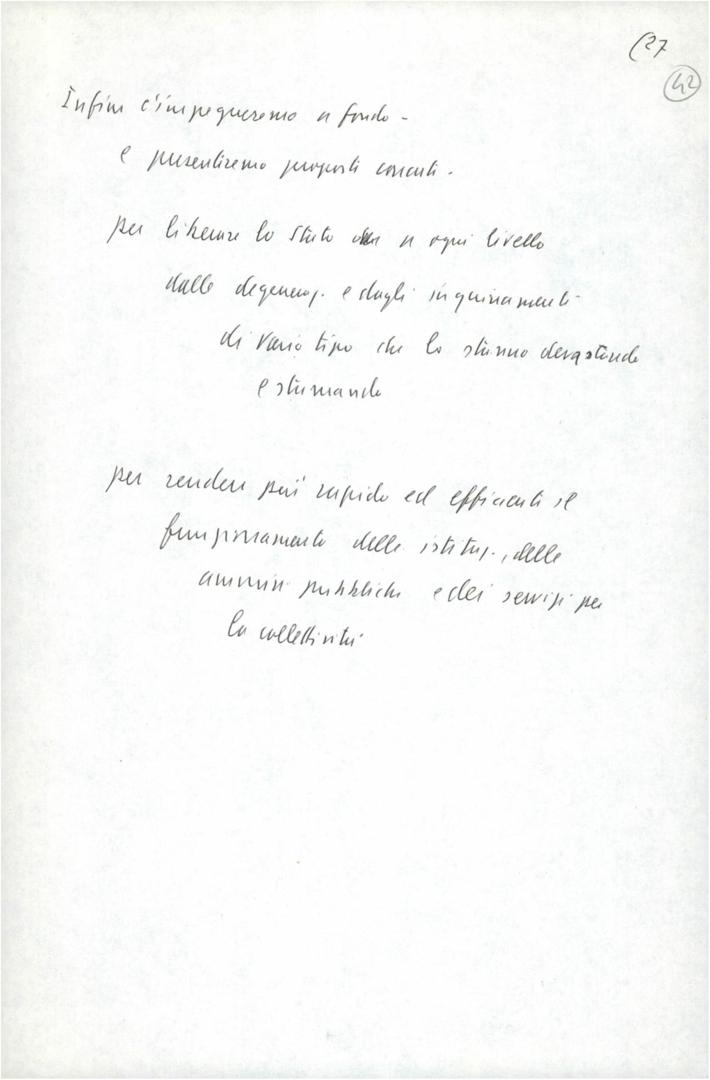 (27
42
Infine c'impegneremo a fondo -
e presenteremo proposte concrete -
per liberare lo Stato a ogni livello
dalle degeneraz. e dagli inquinamenti
di vario tipo che lo stanno devastando
e stremando
per rendere più rapido ed efficiente il
funzionamento delle istituz., delle
ammin. pubbliche e dei servizi per
la collettività